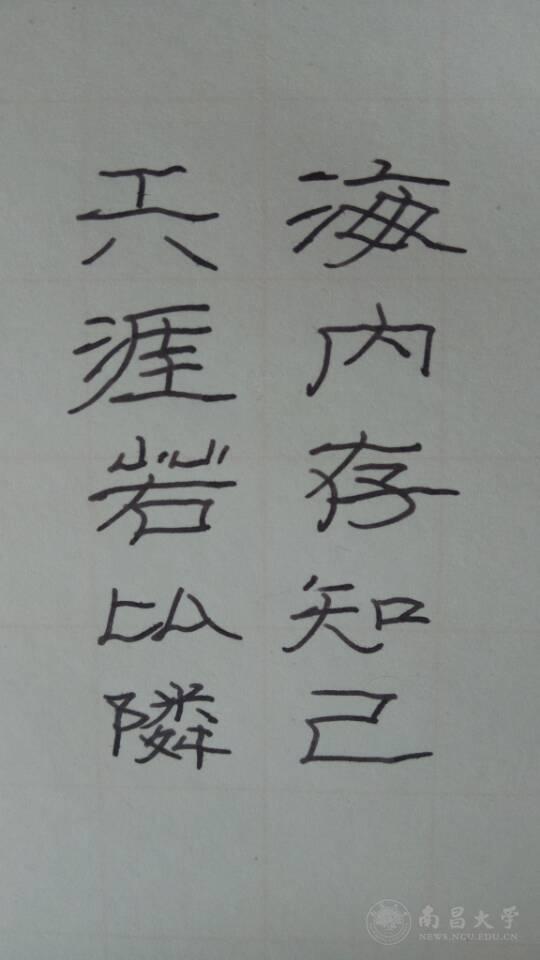 海内存知己
天涯若比隣
南昌大学
NEWS.NCU.EDU.CN